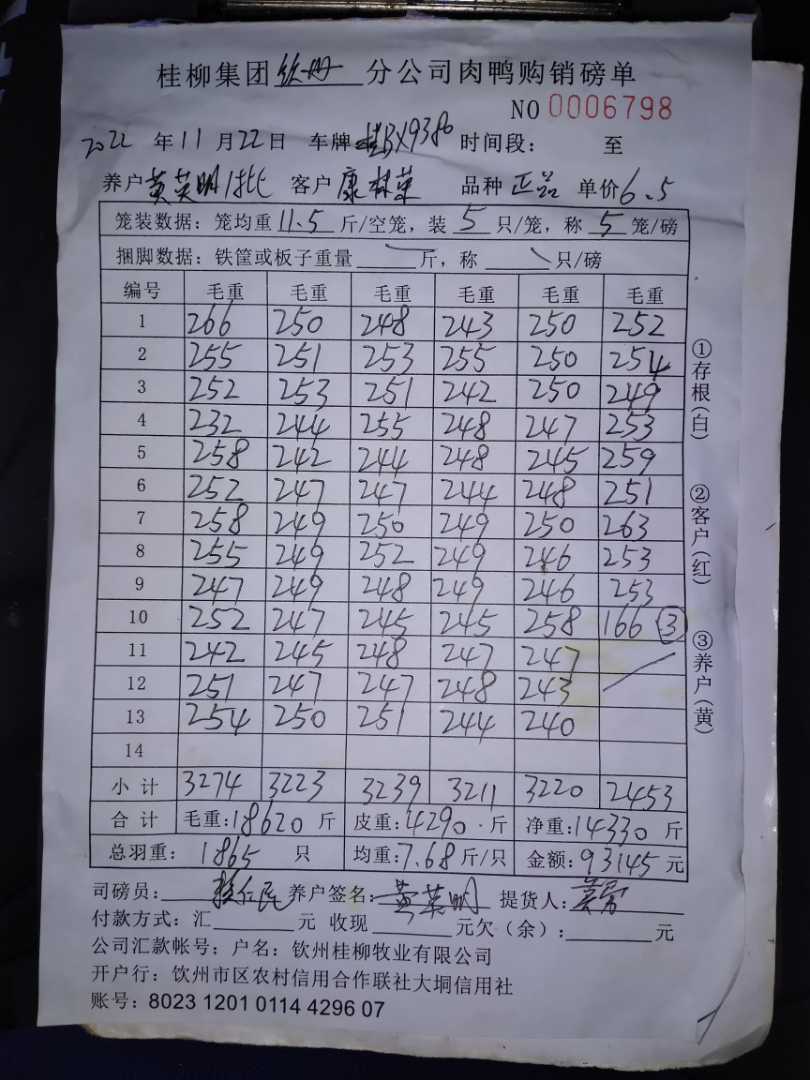 桂柳集团钦州分公司肉鸭购销磅单
NO 0006798
2022年11月22日 车牌桂BX9380 时间段: 至
养户黄英明1批 客户康林菜 品种正品 单价6.5
笼装数据: 笼均重11.5斤/空笼, 装5只/笼, 称5笼/磅
捆脚数据: 铁筐或板子重量 斤, 称 只/磅
编号 毛重 毛重 毛重 毛重 毛重 毛重
1 266 250 248 243 250 252
2 255 251 253 255 250 254
3 252 253 251 242 250 249
4 232 244 255 248 247 253
5 258 242 244 248 245 259
6 252 247 247 244 248 251
7 258 249 250 249 250 263
8 255 249 252 249 246 253
9 247 249 248 249 246 253
10 252 247 245 245 258 166 ③
11 242 245 248 247 247
12 251 247 247 248 243
13 254 250 251 244 240
14
小计 3274 3223 3239 3211 3220 2453
合计 毛重:18620斤 皮重:4290.斤 净重:14330斤
总羽重: 1865只 均重:7.68斤/只 金额:93145元
司磅员: 养户签名:黄英明 提货人:
付款方式: 汇 元 收现 元欠(余): 元
公司汇款帐号: 户名: 钦州桂柳牧业有限公司
开户行: 钦州市区农村信用合作联社大垌信用社
账号: 8023 1201 0114 4296 07
①存根(白)
②客户(红)
③养户(黄)